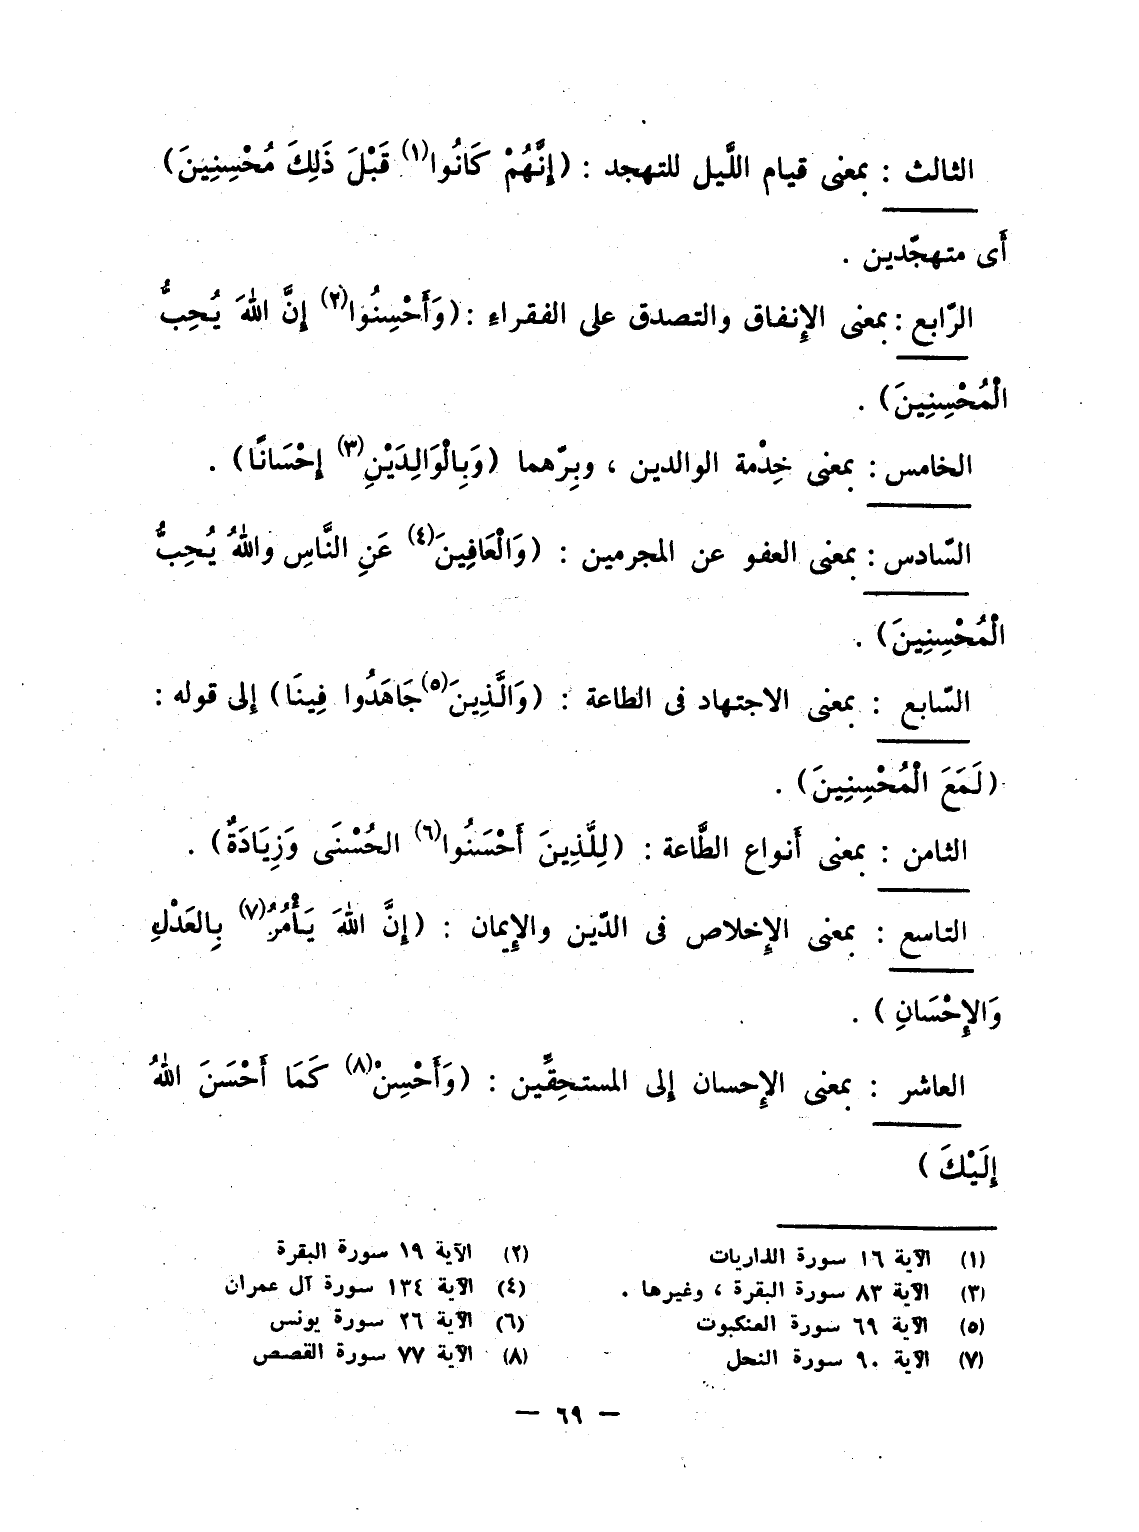 الثالث : بمعنى قيام اللَّيل للتهجد : (إِنَّهُمْ كَانُوا(١) قَبْلَ ذَلِكَ مُحْسِنِينَ)
أَى متهجّدين .
الرّابع : بمعنى الإِنفاق والتصدق على الفقراء : (وَأَحْسِنُوا(٢) إِنَّ اللهَ يُحِبُّ
الْمُحْسِنِينَ) .
الخامس : بمعنى خِدْمة الوالدين ، وبِرّهما (وَبِالْوَالِدَيْنِ(٣) إِحْسَانًا) .
السّادس : بمعنى العفو عن المجرمين : (وَالْعَافِينَ(٤) عَنِ النَّاسِ واللهُ يُحِبُّ
الْمُحْسِنِينَ) .
السّابع : بمعنى الاجتهاد فى الطاعة : (وَالَّذِينَ(٥) جَاهَدُوا فِينَا) إِلى قوله :
(لَمَعَ الْمُحْسِنِينَ) .
الثامن : بمعنى أَنواع الطَّاعة : (لِلَّذِينَ أَحْسَنُوا(٦) الحُسْنَى وَزِيَادَةٌ) .
التاسع : بمعنى الإِخلاص فى الدّين والإِيمان : (إِنَّ اللهَ يَأْمُرُ(٧) بِالعَدْلِ
وَالإِحْسَانِ ) .
العاشر : بمعنى الإِحسان إِلى المستحِقِّين : (وَأَحْسِنْ(٨) كَمَا أَحْسَنَ اللهُ
إِلَيْكَ )
(١) الآية ١٦ سورة الذاريات (٢) الآية ١٩ سورة البقرة
(٣) الآية ٨٣ سورة البقرة ، وغيرها . (٤) الآية ١٣٤ سورة آل عمران
(٥) الآية ٦٩ سورة العنكبوت (٦) الآية ٢٦ سورة يونس
(٧) الآية ٩٠ سورة النحل (٨) الآية ٧٧ سورة القصص
— ٦٩ —